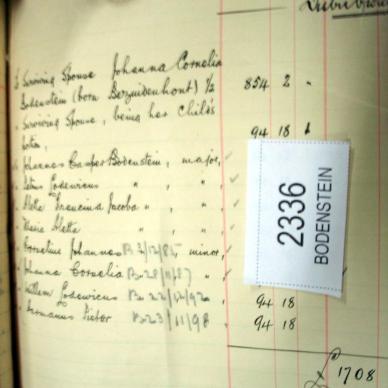 Surviving Spouse Johanna Cornelia
Bodenstein (born Bezuidenhout) 1/2 854 2 "
" Surviving Spouse, being her Child's
portion, 94 18
" Johannes Casper Bodenstein, major,
" Petrus Lodewicus " , " ,
" Aletta Francina Jacoba " , " ,
" Maria Aletta " , " ,
" Cornelius Johannes B. 3/12/85, minor,
" Johanna Cornelia B. 28/11/87 " ,
" Willem Lodewicus B. 22/12/92 " , 94 18
" Hermanus Pieter B. 23/11/98 , 94 18
£ 1708
2336
BODENSTEIN